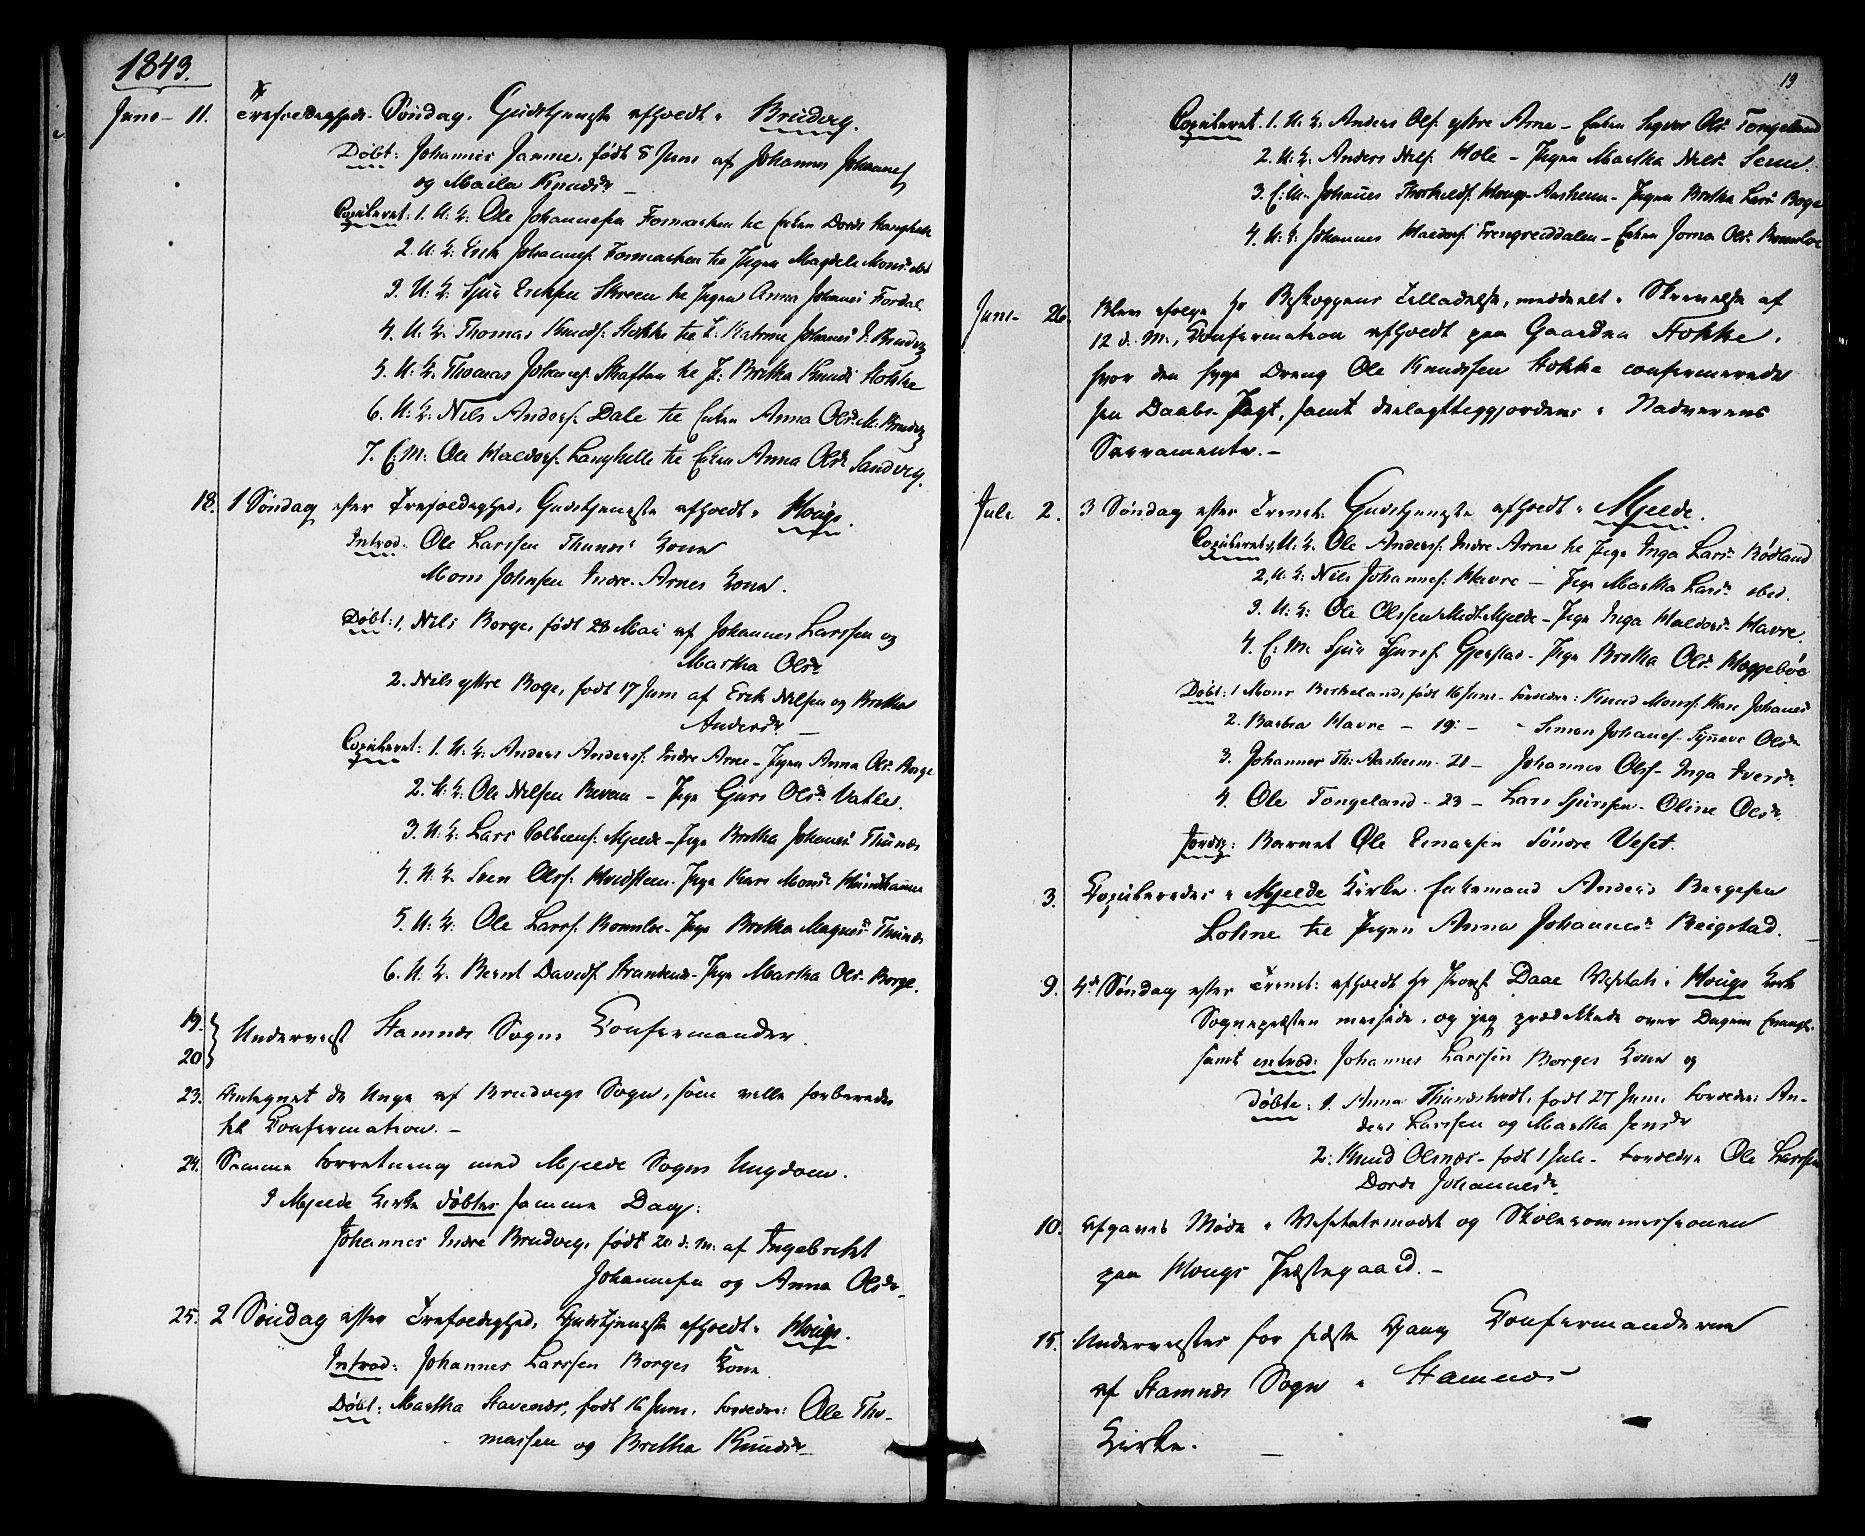 1843.
Juni - 11. Trefoldigheds Søndag. Gudstjeneste afholdt i Brudvig.
Døbt: Johannes Jamne, født 8 Juni af Johannes Johannesf
og Marta Knudsdr
Copuleret: 1. U. K. Ole Johannesen Fosmarken til Enken Dordi Langhelle
2. U. K. Erik Johannesf. Fosmarken til Pigen Magdeli Monsdr ibid
3. U. K. Sjur Eriksen Skreen til Pigen Anna Johannesdr Fordal
4. U. K. Thomas Knudsf. Stokke til P. Katrine Johannesdr I. Brudvig
5. U. K. Thomas Johannesf. Skaften til P. Britha Knudsdr Stokke
6. U. K. Nils Andersf. Dale til Enken Anna Olsdr M. Brudvig
7. E. M. Ole Haldorsf. Langhelle til Enken Anna Olsdr Sandvig.
18. 1 Søndag efter Trefoldighed, Gudstjeneste afholdt i Hougs.
Introd. Ole Larssen Thunæs Kone
Mons Johnsen Indre Arnes Kone.
Døbt: 1. Nils Borge, født 28 Mai af Johannes Larssen og
Martha Olsdr
2. Nils yttre Boge, født 17 Juni af Erik Nilsen og Britha
Andersdr
Copuleret: 1. U. K. Anders Andersf. Indre Arne - Pigen Anna Olsdr Borge
2. U. K. Ole Nilsen - Pige Guro Olsdr Vatle.
3. U. K. Lars Colbensf. Mjelde - Pige Britha Johannesdr Thunæs
4. U. K. Sven Olsf. - Pige Kari Monsdr
5. U. K. Ole Larsf. Romslo - Pige Britha Magnesdr Thunæs
6. U. K. Bernt Davidsf. - Pige Martha Olsdr Borge.
19. 20 } Underviist Stamnæs Sogns Confirmander.
23. Antegnet de Unge af Brudvigs Sogn, som ville forberedes
til Confirmation. -
24. Samme Forretning med Mjelde Sogns Ungdom.
I Mjelde Kirke døbtes samme Dag:
Johannes Indre Brudvig, født 20 d. M. af Ingebrikt
Johannesen og Anna Olsdr
25. 2 Søndag efter Trefoldighed, Gudstjeneste afholdt i Hougs.
Introd: Johannes Larssen Borges Kone
Døbt: Martha Stavenæs, født 16 Juni, Forældre: Ole Tho-
massen og Britha Knudsdr
19
Copuleret. 1. U. K. Anders Olsf. yttre Arne - Enken Sygvor Olsdr Tongeland
2. U. K. Anders Nilsf. Hole - Pigen Martha Nilsdr
3. E. M. Johannes Thorkildsf. Hougs-Aasheim - Pigen Britha Larsdr Boge
4. U. K. Johannes Haldorsf. Trengereiddalen - Enken Jorna Olsdr Romslo
Juni - 26. Blev ifølge Hr Biskoppens Tilladelse, meddeelt i Skrivelse af
12 d. M., Confirmation afholdt paa Gaarden Stokke,
hvor den syge Dreng Ole Knudssen Stokke confirmeredes
paa Daabs-Pagt, samt deelagtiggjordes i Nadverens
Sacramente. -
Juli 2. 3 Søndag efter Trinit: Gudstjeneste afholdt i Mjelde.
Copuleret: 1, U. K. Ole Andersf. Indre Arne til Pige Inga Larsdr Rødland
2, U. K. Nils Johannesf. Havre - Pige Martha Larsdr ibid.
3. U. K. Ole Olssen Midt-Mjelde - Pige Inga Haldorsdr Havre.
4. E. M. Sjur Sjursf. Gjerstad - Pige Britha Olsdr Hoggebøe
Døbt: 1 Mons Birkeland, født 16 Juni - Forældre: Knud Monsf. Kari Johanesdr
2. Barbra Havre - 19. - Simon Johanesf - Synneve Olsdr
3. Johannes Th: Aasheim - 21 - Johannes Olsf - Inga Iversdr
4. Ole Tongeland - 23 - Lars Sjursen - Oline Olsdr.
Jordf: Barnet Ole Einarsen Søndre Veset.
3. Copuleredes i Mjelde Kirke Enkemand Anders Bergesen
Lohne til Pigen Anna Johannesdr Reigstad.
9. 4de Søndag efter Trinit: afholdt Hr Provst Daae Visitats i Hougs Kirke
Sognepræsten messede, og jeg prædikede over Dagens Evangl.
samt introd: Johannes Larssen Borges Kone og
døbte: 1. Anna Thunestvedt, født 27 Juni. Forældre: An-
ders Larssen og Martha Jensdr
2: Knud Olsnæs - født 1 Juli - Forældre Ole Larssen
Dordi Johannesdr.
10. Afgaves Møde i Visitatsmødet og Skolecommissionen
paa Hougs Præstegaard. -
15. Undervistes for sidste Gang Confirmanderne
af Stamnæs Sogn i Stamnæs
Kirke. -